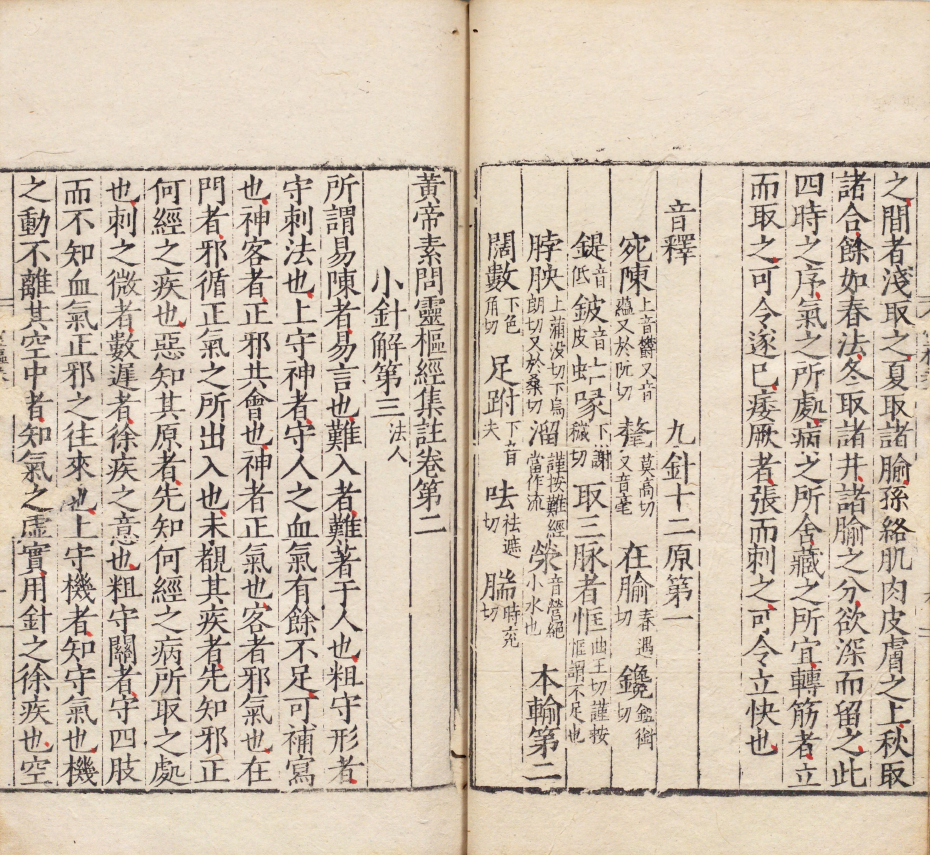 之間者淺取之夏取諸腧孫絡肌肉皮膚之上秋取
諸合餘如春法冬取諸井諸腧之分欲深而留之此
四時之序氣之所處病之所舍藏之所宜轉筋者立
而取之可令遂已痿厥者張而刺之可令立快也
音釋
九針十二原第一
宛陳上音鬱又音蘊又於阮切 氂莫高切又音毫 在腧春遇切 鑱鋤銜切
鍉音低 鈹音皮 虻喙下謝穢切 取三脉者恇曲王切謹按恇謂不足也
脖胦上蒲没切下烏朗切又於桑切 溜謹按難經當作流 滎音營絕小水也 本輸第二
闊數下色角切 足跗下音夫 呿祛遮切 腨時兗切
黃帝素問靈樞經集註卷第二
小針解第三法人
所謂易陳者易言也難入者難著于人也粗守形者
守刺法也上守神者守人之血氣有餘不足可補寫
也神客者正邪共會也神者正氣也客者邪氣也在
門者邪循正氣之所出入也未覩其疾者先知邪正
何經之疾也惡知其原者先知何經之病所取之處
也刺之微者數遲者徐疾之意也粗守關者守四肢
而不知血氣正邪之往來也上守機者知守氣也機
之動不離其空中者知氣之虛實用針之徐疾也空